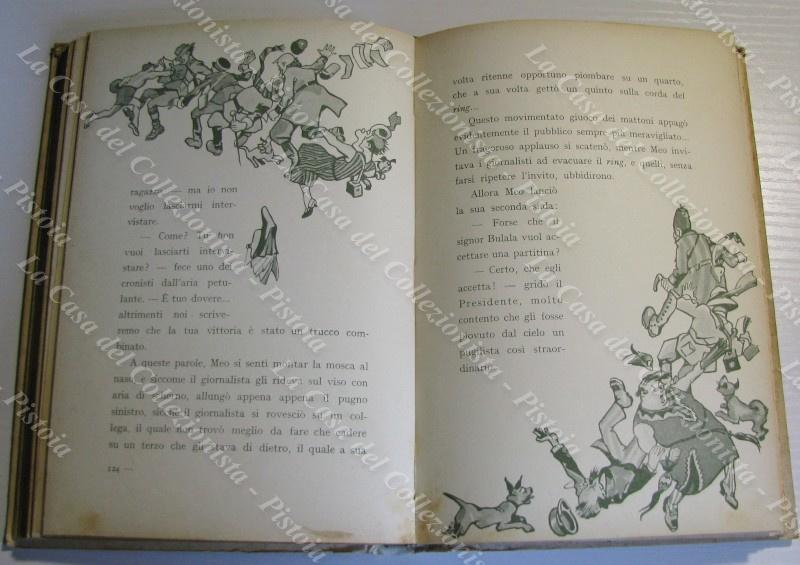 ragazzo — ma io non
voglio lasciarmi inter-
vistare.
— Come? Tu non
vuoi lasciarti intervi-
stare? — fece uno dei
cronisti dall'aria petu-
lante. — È tuo dovere...
altrimenti noi scrive-
remo che la tua vittoria è stato un trucco com-
binato.
A queste parole, Meo si sentì montar la mosca al
naso e siccome il giornalista gli rideva sul viso con
aria di scherno, allungò appena appena il pugno
sinistro, sicchè il giornalista si rovesciò su un col-
lega, il quale non trovò meglio da fare che cadere
su un terzo che gli stava di dietro, il quale a sua
124 —
volta ritenne opportuno piombare su un quarto,
che a sua volta gettò un quinto sulla corda del
ring...
Questo movimentato giuoco dei mattoni appagò
evidentemente il pubblico sempre più meravigliato...
Un fragoroso applauso si scatenò, mentre Meo invi-
tava i giornalisti ad evacuare il ring, e quelli, senza
farsi ripetere l'invito, ubbidirono.
Allora Meo lanciò
la sua seconda sfida:
— Forse che il
signor Bulala vuol ac-
cettare una partitina?
— Certo, che egli
accetta! — gridò il
Presidente, molto
contento che gli fosse
piovuto dal cielo un
pugilista così straor-
dinario.
La Casa del Collezionista - Pistoia
La Casa del Collezionista - Pistoia
La Casa del Collezionista - Pistoia
La Casa del Collezionista - Pistoia